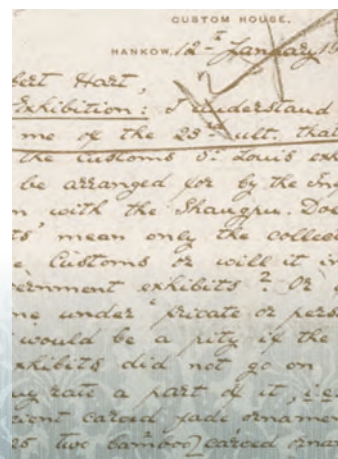 CUSTOM HOUSE,
HANKOW, 12th January 19
bert Hart,
Exhibition: I understand
me of the 23rd ult. that
the Customs St. Louis exh
be arranged for by the Ins
n with the Shangpu. Doe
ts' mean only the collect
e Customs or will it in
ernment exhibits? Or
me under 'private or perso
would be a pity if the
xhibits did not go on
ny rate a part of it, i.e.
cient carved jade ornamen
25 two bamboo carved orna